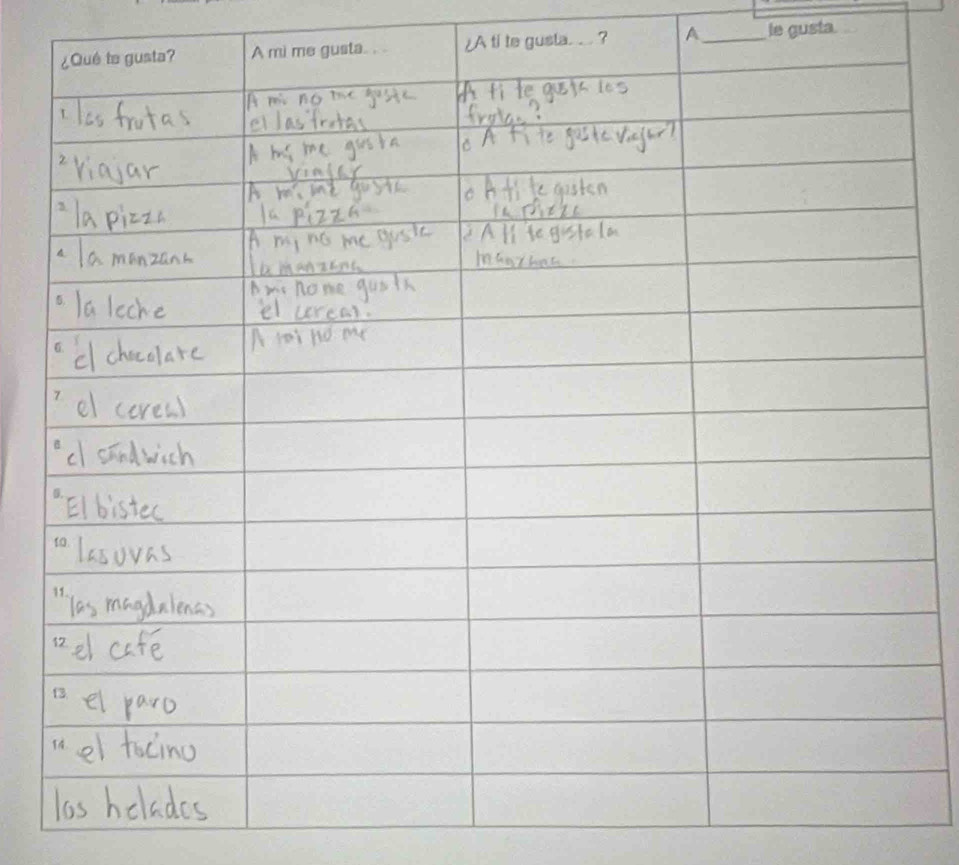 ¿Qué te gusta? A mi me gusta. . . ¿A ti te gusta. . . ? A______ le gusta. . .
1. las frutas
A mi no me gusta
el las frutas
A ti te gusta los
frutas?
2. Viajar
A mi me gusta
viajar
¿ A ti te gusta viajar?
3. la pizza
A mi me gusta
la pizza
¿ A ti te gustan
la pizza
4. la manzana
A mi no me gusta
la manzana
¿ A ti te gusta la
manzana.
5. la leche
A mi no me gusta
el cereal.
6. el chocolate
A mi no me
7. el cereal
8. el sandwich
9. El bistec
10. las uvas
11. las magdalenas
12. el café
13. el pavo
14. el tocino
los helados